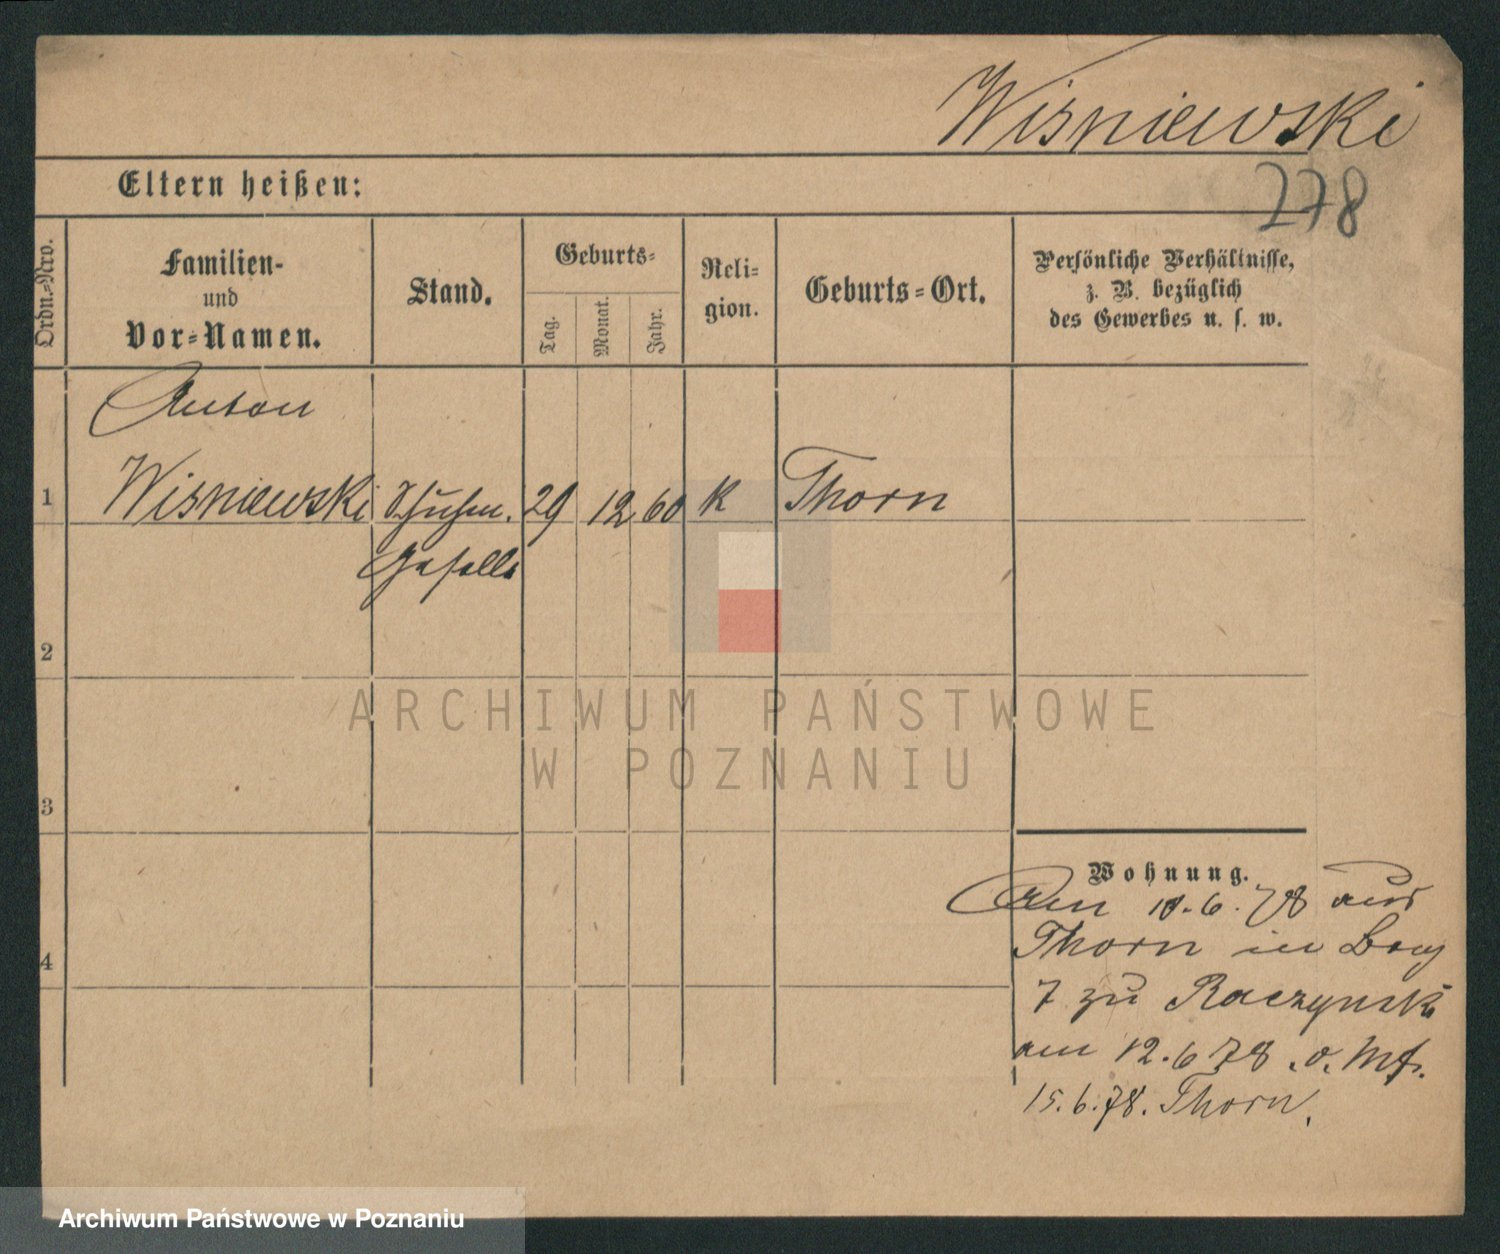 Wisniewski
278
Eltern heißen:
Ordn.-Nro.
Familien-
und
Vor-Namen.
Stand.
Geburts-
Tag.
Monat.
Jahr.
Reli-
gion.
Geburts-Ort.
Persönliche Verhältnisse,
z. B. bezüglich
des Gewerbes u. s. w.
Anton
1 Wisniewski Schuhm. 29 12 60 K Thorn
Geselle
2
3
4
ARCHIWUM PAŃSTWOWE
W POZNANIU
Wohnung.
Am 11.6.78 aus
Thorn in
7 zu Raczynski
am 12.6 78 .o.
15.6.78. Thorn.
Archiwum Państwowe w Poznaniu